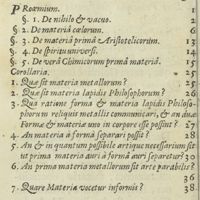 Proœmium. 1
§. 1. De nihilo & vacuo. 2
§. 2. De materia cœlorum. 6
§. 3. De materiâ primâ Aristotelicorum. 13
§. 4. De spiritu universi. 15
§. 5. De verâ Chimicorum primâ materiâ. 15
Corollaria. 25
1. Quæ sit materia metallorum? 25
2. Quæ sit materia lapidis Philosophorum? 26
3. Quâ ratione forma & materia lapidis Philoso-
phorum reliquis metallis communicari, & an duæ
Formæ & materiæ uno in corpore esse possint? 27
4. An materia à formâ separari possit? 28
5. An & in quantum possibile artique necessarium sit
ut prima materia auri à formâ auri separetur? 30
6. An prima materia metallorum sit arte parabilis?
36
7. Quare Materia vocetur informis? 38